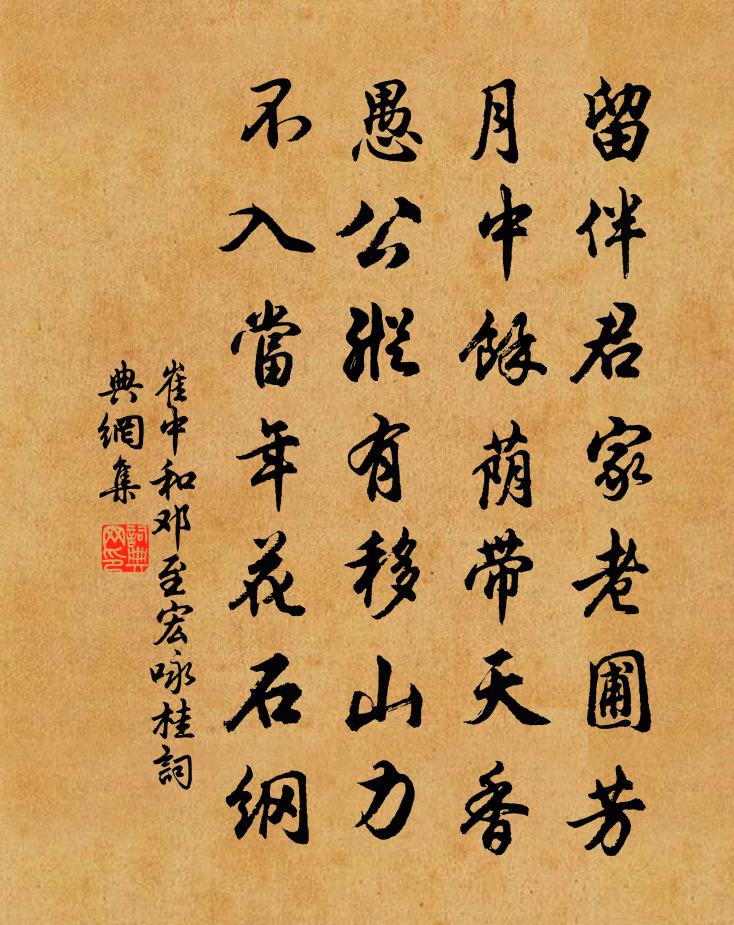 留伴君家老圃芳
月中餘荫带天香
愚公縱有移山力
不入當年花石纲
崔中和邓至宏咏桂詞
典網集
詞典
网印